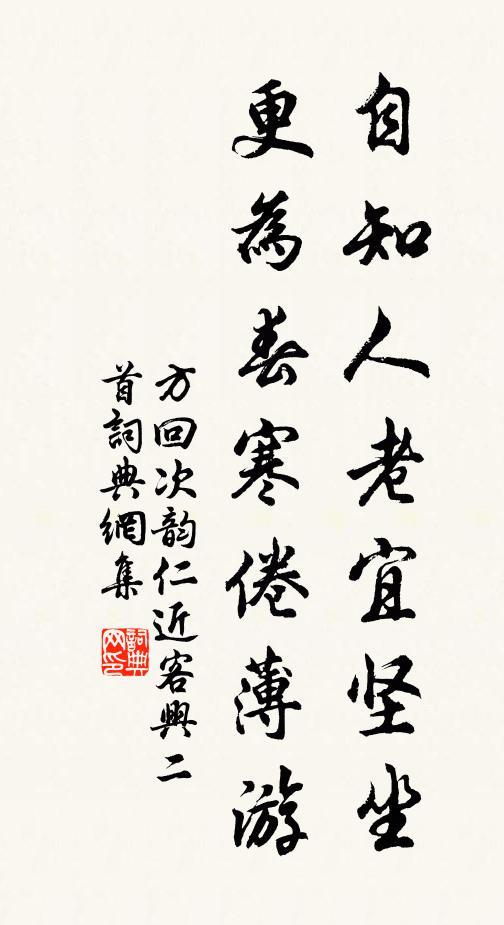 自知人老宜坚坐
更為春寒倦薄游
方回次韵仁近客興二
首詞典網集
詞典网印